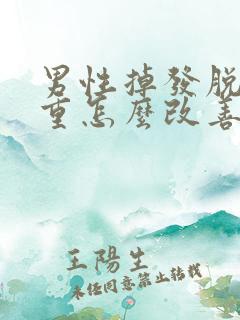 男性掉發脫
重怎麼改善
王陽生
未经同意禁止转载